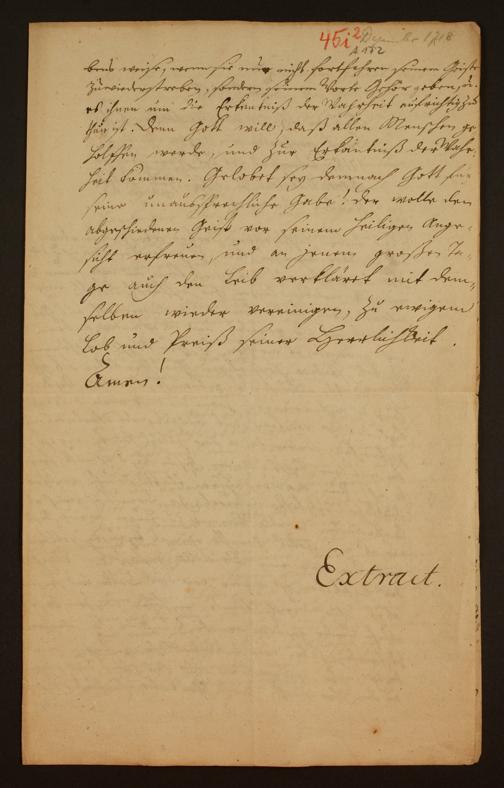 45i2 Dezember 1818
A 152
bens weise, wenn sie nur nicht fortfahren seinem Geiste
zu wiederstreben, sondern seinem Worte Gehör geben, u.
es ihnen um die Erkentniß der Wahrheit aufrichtig zu
thun ist. Denn Gott will, daß allen Menschen ge-
holffen werde, und zur Erkäntniß der Wahr-
heit kommen. Gelobet sey demnach Gott für
seine unaussprechliche Gabe! der wolle den
abgeschiedenen Geist vor seinem heiligen Ange-
sicht erfreuen, und an jenem großen Ta-
ge auch den Leib verkläret mit dem-
selben wieder vereinigen, zu ewigem
Lob und Preiß seiner Herrlichkeit.
Amen!
Extract.